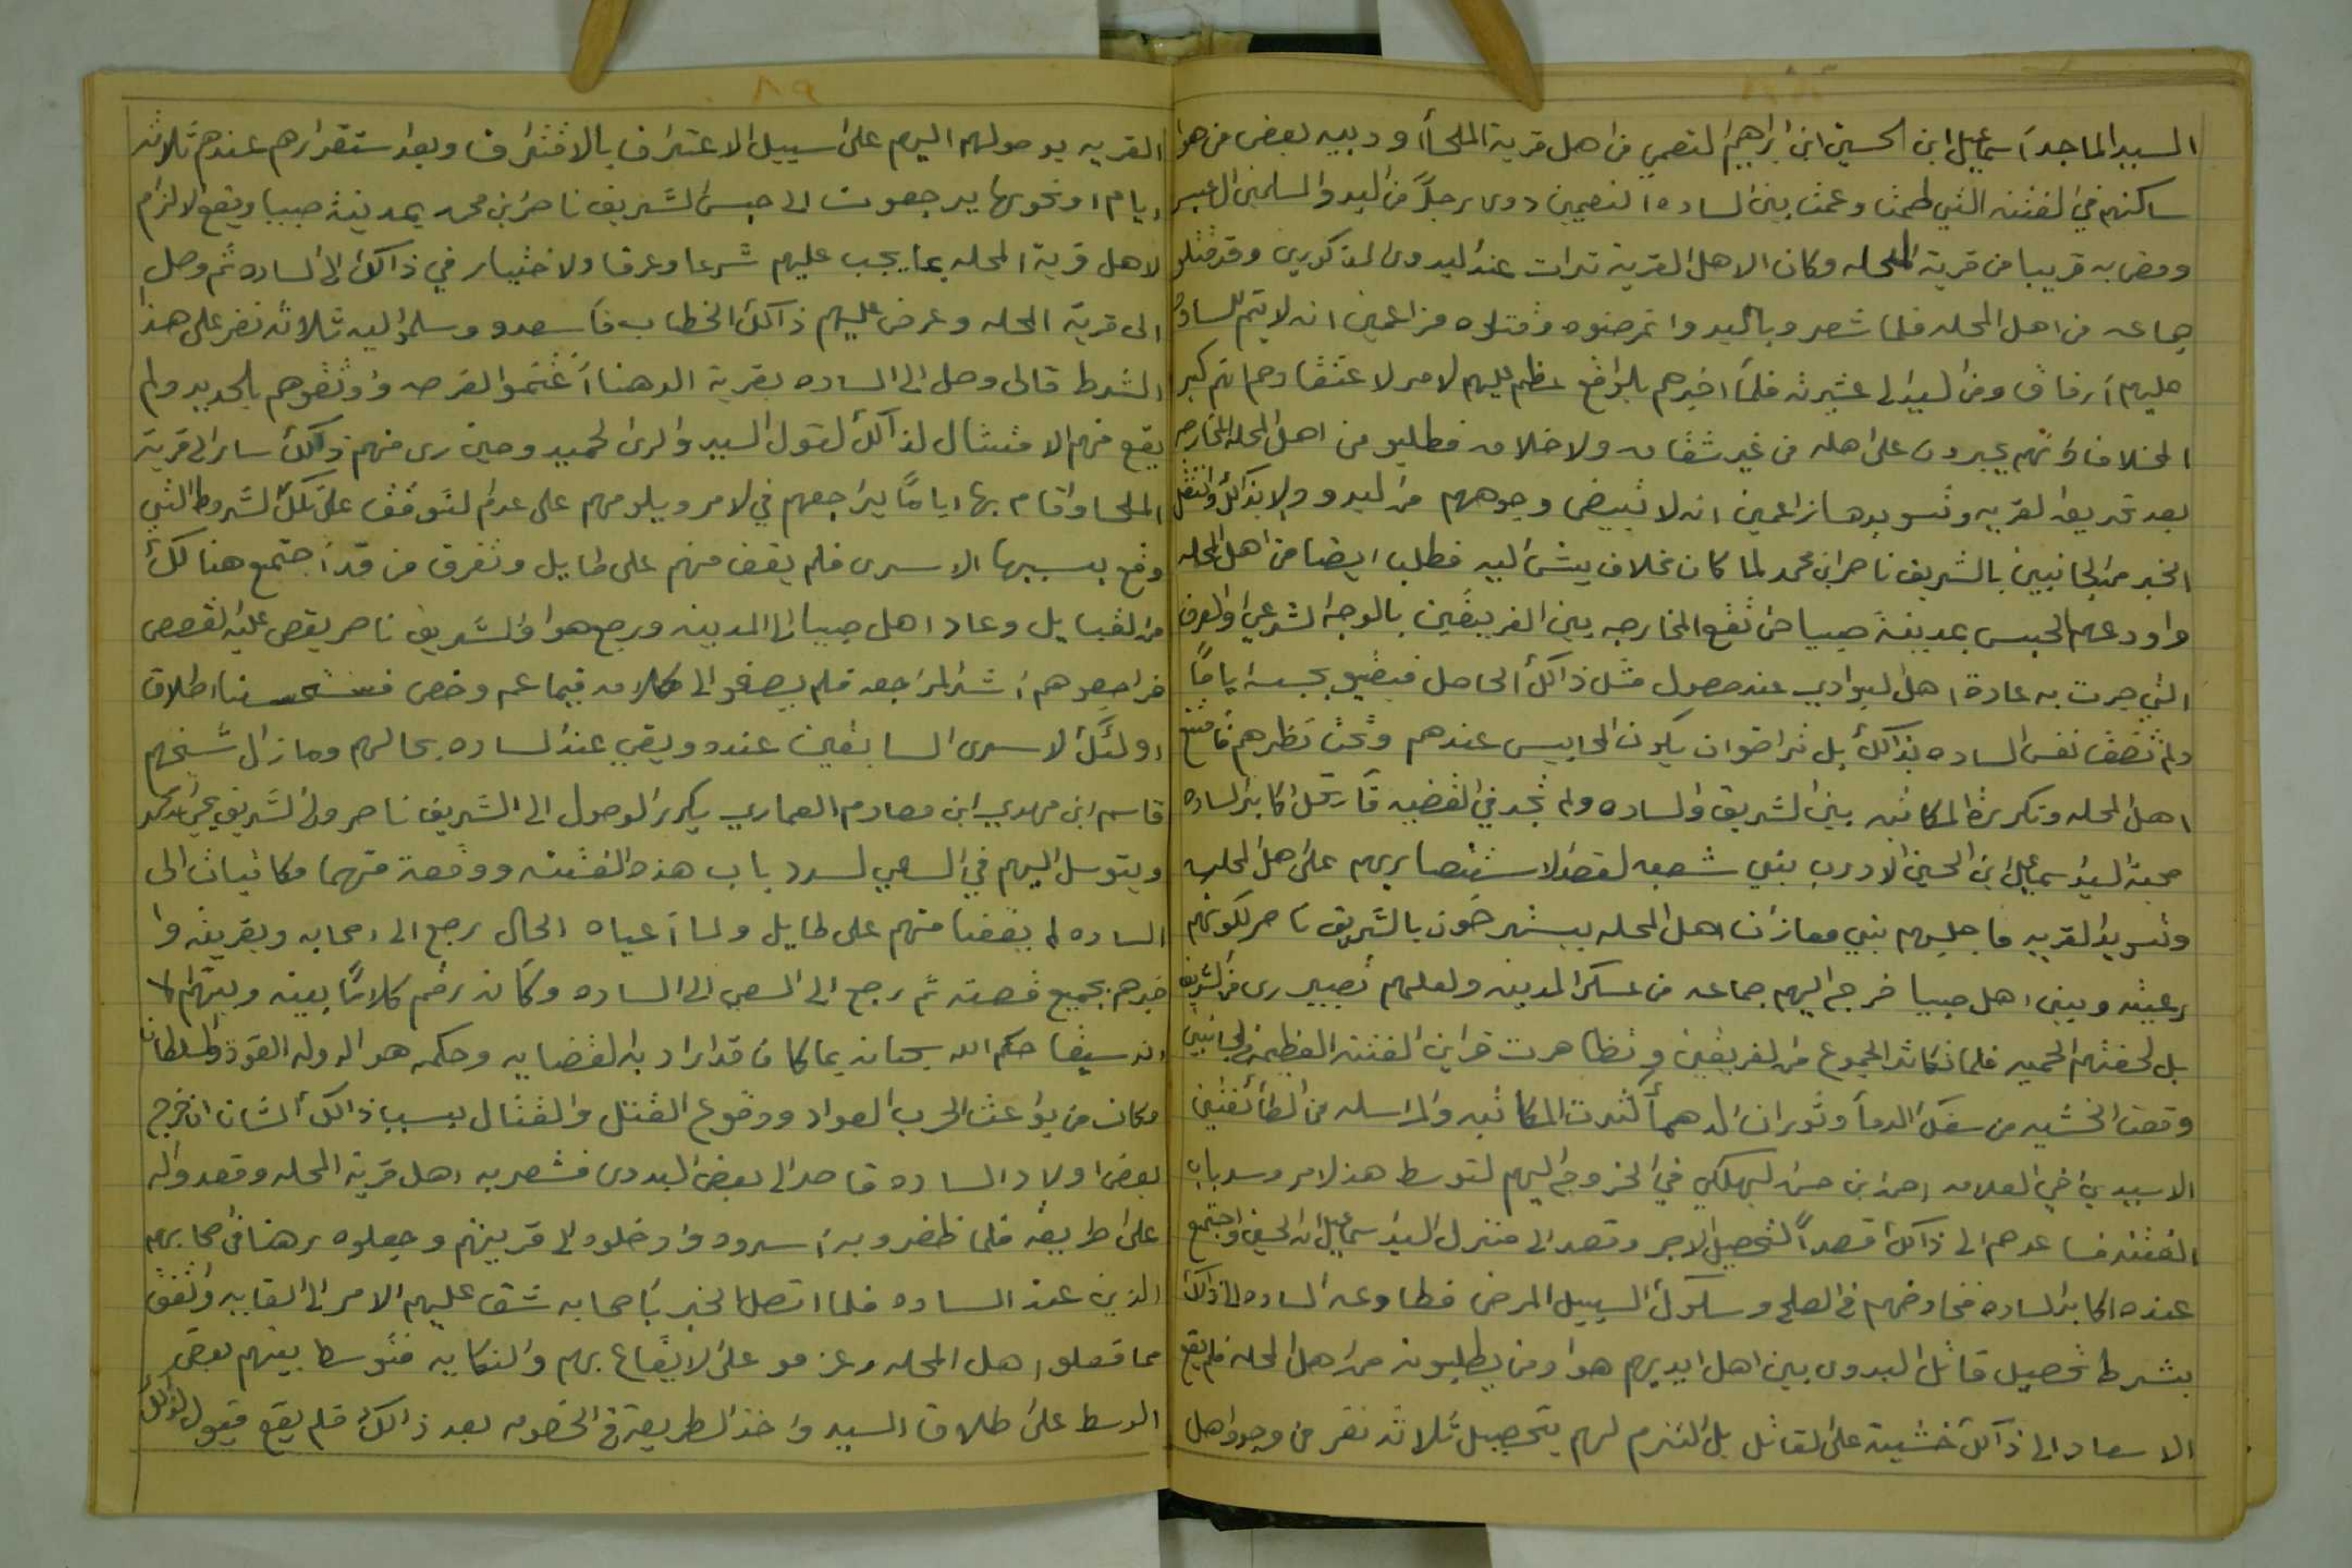 السيد الماجد اسماعيل ابن الحسين ابن ابراهيم النعمي من اهل قرية الملحا ودبيه بعض من هوا
ساكنهم في الفتنه التي طمت وعمت بين الساده النعميين دوى رجلاً من البدو المسلمين
ومضى به قريبا من قرية المحله وكان الاهل القرية ترات عند البدوى المذكورين وقد قتلو
جماعه من اهل المحله فلما شعروبالبدو اتعرضوه وقتلوه مزاعمين انه لا يتم للساده
عليهم ارفاق ومن السيد الى عشيرته فلما اخبرهم بالواقع عظم عليهم لامر لا عتقادهم انهم كبر
المخلاف وانهم يجيرون على اهله من غير شقاق ولا خلاف فطلبو من اهل المحله المخارجه
بعد تحريق القريه وتسويدها زاعمين انه لا تبيض وجوههم من البدو ولا بذالك وانتقل
الخبر من الجانبين بالشريف ناصر ابن محمد لما كان مخلاف بيش اليه فطلب ايضا من اهل المحله
واودعهم الحبس بمدينة صبيا حتى تقع المخارجه بين الفريقين بالوجه الشرعي والعرف
التي جرت به عادة اهل البوادي عند حصول مثل ذالك الحاصل فبقيو بحبسه اياماً
ولم تقف نفس الساده بذالك بل تراضوان يكون المحابيس عندهم وتحت نظرهم فامتنع
اهل المحله وتكررة المكاتبه بين الشريف والساده ولم تجد في القضيه فارتحل اكابر الساده
صحبة السيد اسماعيل ابن الحسين الا درب بني شعبه لقصد الاستنصاربهم على اهل المحله
وتسويد القريه فاجابهم بني ومازالت اهل المحله يستصرخون بالشريف ناصر لكونهم
رعيته وبينى اهل صبيا فخرج اليهم جماعه من عسكر المدينه ولعلهم بصبير رى من الشريف
بل لحقتهم الحميه فلما تكاثر الجموع من الفريقين وتظاهرت قراين الفتنه العظيمه من الجانبين
وقعت الخشيه من سفك الدما وثوران الدهما كثرت المكاتبه والمراسله من الطائفتين
الا سيدي اخي العلامه احمد ابن حسن البهلكي في الخروج اليهم لتوسط هذ لامر وسد باب
الفتنه فساعدهم الى ذالك قصداً لتحصيل الاجر وقصد الى منزل السيد اسماعيل ابن الحسين واجتمع
عنده اكابر الساده فخاوضهم في الصلح وسلوك السبيل المرضى فطاوعه الساده الى ذالك
بشرط تحصيل قاتل البدوى بين اهل ايديهم هوا ومن يطلبونه من اهل المحله فلم يقع
الاسعاد الى ذالك خشية على القاتل بل التزم لهم بتحصيل ثلاثه نفر من وجوه اهل
القريه بوصولهم اليهم على سبيل الاعتراف بالاقتراف وبعد استقرارهم عندهم ثلاثه
ايام او نحوها يرجعون الى حبس الشريف ناصر ابن محمد بمدينة صبيا ويقع لالزام
لاهل قرية المحله بما يجب عليهم شرعا وعرفا ولا ختيار في ذالك الى الساده ثم وصل
الى قرية المحله وعرض عليهم ذالك الخطاب فاسعدو وسلموا اليه ثلاثة نفر على هذا
الشرط قالى وصل الى الساده بقرية الدهنا اغتموا الفرصه واوثقوهم بالحديد ولم
يقع منهم الا متثال لذالك لقول السيد والرى لحميد وحين رى منهم ذالك سار الى قرية
الملحا واقام بها اياماً يراجعهم في لامر ويلومهم على عدم التوقف على تلك الشروط التي
وقع بسببها الاسرى فلم يقف منهم على طايل وتفرق من قد اجتمع هنالك
من القبايل وعاد اهل صبيا الى المدينه ورجع هوا والشريف ناصر يقص عليه القصص
فراجعوهم اشد المراجعه فلم يصغوا الى كلامه فيما عم وخص اطلاق
اولئك الاسرى السابقين عنده وبقي عند الساده بحالهم ومازال شيخهم
قاسم ابن مهدي ابن مصادم العماري يكرر الوصول الى الشريف ناصر والى الشريف يحي ابن محمد
ويتوسل اليهم في السعي لسرد باب هذه الفتنه ووقعة منهما مكاتبات الى
الساده لم يقفنا منهم على طايل ولما اعياه الحال رجع الى اصحابه وبقريته وا
خبرهم بجميع قصته ثم رجع الى السعي الى الساده وكانه رقم كلاماً بينه وبينهم
انه سيقا حكم الله سبحانه بما كان قد اراد به لقضايه وحكمه هو الدوله القوه والسلطان
وكان من بواعث الحرب العواد ووقوع القتل والقتال بسبب ذالك الشان ان خرج
بعض اولاد الساده قاصد الى بعض البدوى فشعر به اهل قرية المحله وقعدوا له
على طريقه فلما ظفروبه اسروه وادخلوه الى قريتهم وجعلوه رهنا في اصحابهم
الذين عند الساده فلما اتصل الخبر باصحابه شق عليهم الامر الى الغايه واتفق
مما فعلو اهل المحله وعزمو على الايقاع بهم والنكايه فتوسط بينهم بعض
الوسط على طلاق السيد واخذ الطريقه في الخصومه بعد ذالك فلم يقع قبول لذالك